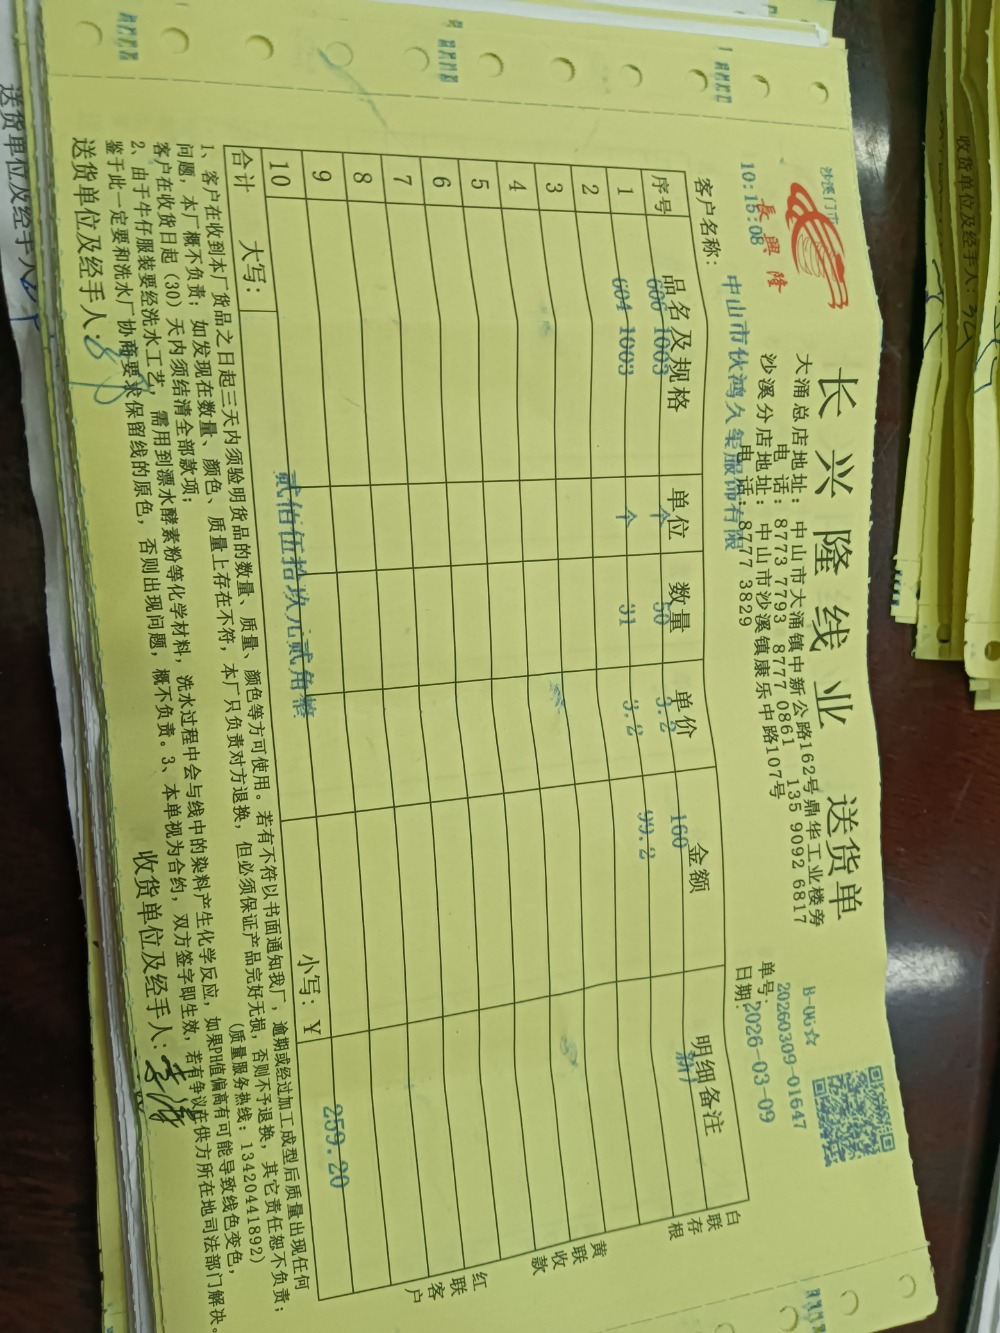 沙溪门市
長興隆
10:15:08
长兴隆线业 送货单
大涌总店地址：中山市大涌镇中新公路162号鼎华工业楼旁
电话：8773 7793 8777 0861 135 9092 6817
沙溪分店地址：中山市沙溪镇康乐中路107号
电话：8777 3829
B-06☆
单号：20260309-01647
日期：2026-03-09
客户名称：中山市伙鸿久隼服饰有限
序号 品名及规格 单位 数量 单价 金额 明细备注
606 1003 个 50 3.2 160 新厂
1 604 1003 个 31 3.2 99.2
2
3
4
5
6
7
8
9
10
合计 大写： 贰佰伍拾玖元贰角整 小写：￥ 259.20
白联存根
黄联收款
红联客户
1、客户在收到本厂货品之日起三天内须验明货品的数量、质量、颜色等方可使用。若有不符以书面通知我厂，逾期或经过加工成型后质量出现任何
问题，本厂概不负责；如发现在数量、颜色、质量上存在不符，本厂只负责对方退换，但必须保证产品完好无损，否则不予退换，其它责任恕不负责；
客户在收货日起（30）天内须结清全部款项； （质量服务热线：13420441892）
2、由于牛仔服装要经洗水工艺，需用到漂水酵素粉等化学材料，洗水过程中会与线中的染料产生化学反应，如果PH值偏高有可能导致线色变色，
鉴于此一定要和洗水厂协商要求保留线的原色，否则出现问题，概不负责。3、本单视为合约，双方签字即生效，若有争议在供方所在地司法部门解决。
送货单位及经手人： 收货单位及经手人：
送货单位及经手人
收货单位及经手人：